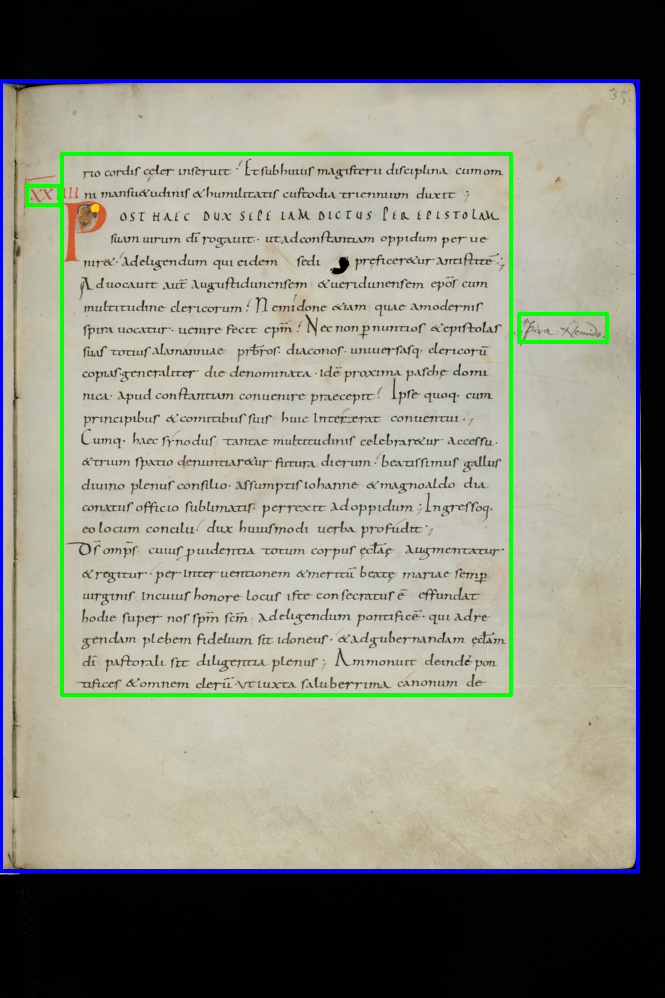 35.
rio cordis celer inseruit · Et sub huius magisterii disciplina cum om
XXIIII
ni mansu&udinis & humilitatis custodia triennium duxit ;
POST HAEC DUX SEPE IAM DICTUS PER EPISTOLAM
suam uirum dī rogauit · ut ad constantiam oppidum per ue
nir& · Ad eligendum qui eidem sedi preficer&ur antistitē ;
Aduocauit autē Augustidunensem & ueridunensem epōs cum
multitudine clericorum ; Nemidone &iam quae amodernis
spira uocatur · uenire fecit epm̄ ; Nec non p nuntios & epistolas
Spira Nemido.
suis totius alamanniae prb̄ros · diaconos · uniuersasq· clericorū
copias generaliter die denominata · idē proxima pasche domi
nica · Apud constantiam conuenire praecepit ; Ipse quoq· cum
principibus & comitibus suis huic Intererat conuentui ·,
Cumq· haec synodus tantae multitudinis celebrar&ur accessu ·
& trium spatio denuntiar&ur futura dierum · beatissimus gallus
diuino plenus consilio · assumptis iohanne & magnoaldo dia
conatus officio sublimatis · perrexit ad oppidum ; Ingressoq·
eo locum concilii · dux huiusmodi uerba profudit ;
Dš omps̄ cuius puidentia totum corpus ęclǣ Augmentatur
& regitur · per interuentionem & meritū beatę mariae semp
uirginis in cuius honore locus iste consecratus ē effundat
hodie super nos spm̄ scm̄ Ad eligendum pontificē · qui ad re
gendam plebem fidelium sit idoneus · & ad gubernandam ęclam̄
dī pastorali sit diligentia plenus ; Ammonuit deinde pon
tifices & omnem clerū · ut iuxta saluberrima canonum de